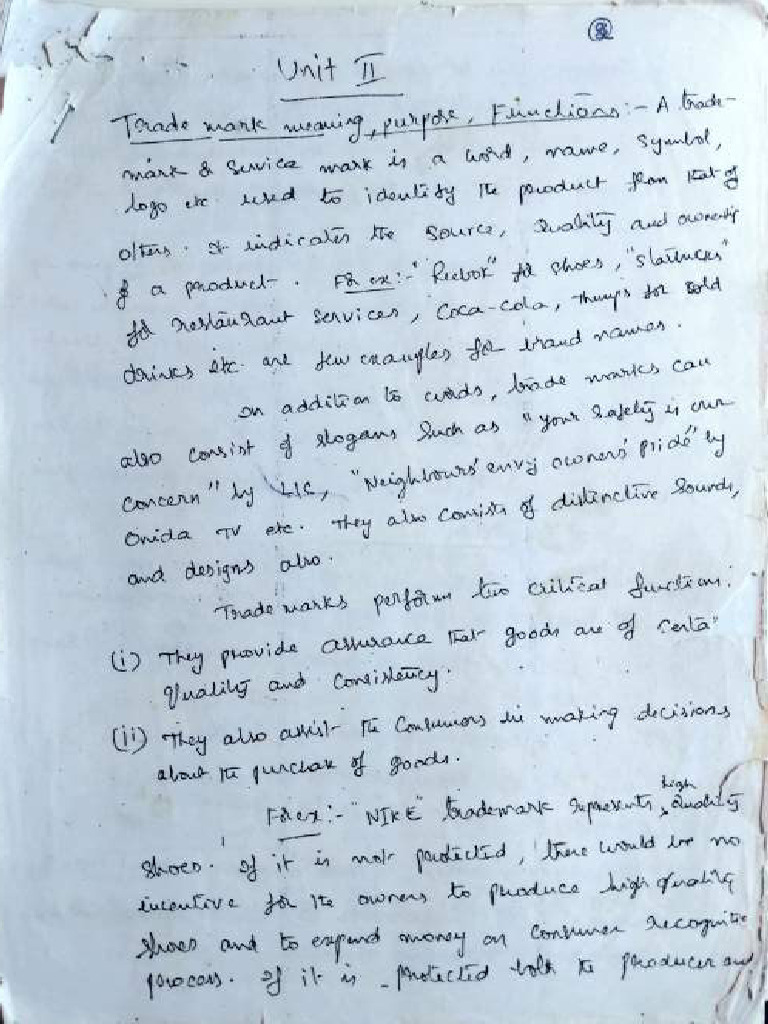 Unit II
Trade mark meaning, purpose, Functions:- A trade-
mark & Service mark is a word, name, Symbol,
logo etc used to identify the product from that of
others. It indicates the source, quality and ownership
of a product. For ex:- "Reebok" for shoes, "Starbucks"
for restaurant services, Coca-cola, Thumps for cold
drinks etc. are few examples for brand names.
In addition to words, trade marks can
also consist of slogans such as "your safety is our
concern" by LIC, "Neighbours' envy owners' pride" by
Onida TV etc. They also consists of distinctive sounds,
and designs also.
Trade marks perform two critical function:
(i) They provide assurance that goods are of certain
quality and consistency.
(ii) They also assist the consumers in making decisions
about the purchase of goods.
For ex:- "NIKE" trademark represents high quality
shoes. If it is not protected, there would be no
incentive for the owners to produce high quality
shoes and to expend money on consumer recognition
process. If it is protected both the producer and